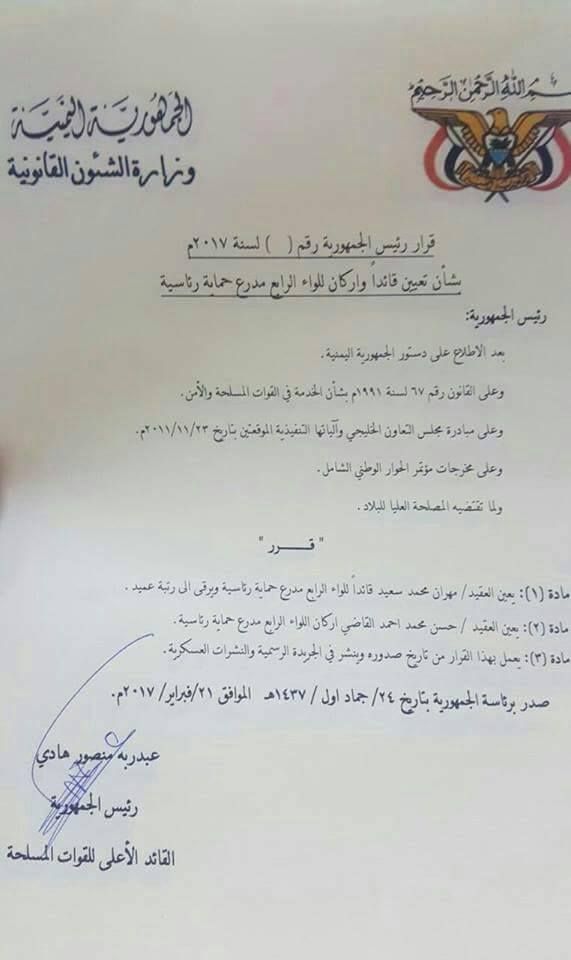 بسم الله الرحمن الرحيم
الجمهورية اليمنية
وزارة الشئون القانونية
قرار رئيس الجمهورية رقم (    ) لسنة ٢٠١٧م
بشأن تعيين قائداً واركان للواء الرابع مدرع حماية رئاسية
رئيس الجمهورية:
بعد الاطلاع على دستور الجمهورية اليمنية .
وعلى القانون رقم ٦٧ لسنة ١٩٩١م بشأن الخدمة في القوات المسلحة والأمن.
وعلى مبادرة مجلس التعاون الخليجي وآلياتها التنفيذية الموقعتين بتاريخ ٢٠١١/١١/٢٣م.
وعلى مخرجات مؤتمر الحوار الوطني الشامل.
ولما تقتضيه المصلحة العليا للبلاد .
" قـــــرر "
مادة (١): يعين العقيد/ مهران محمد سعيد قائداً للواء الرابع مدرع حماية رئاسية ويرقى الى رتبة عميد .
مادة (٢): يعين العقيد / حسن محمد احمد القاضي اركان اللواء الرابع مدرع حماية رئاسية .
مادة (٣): يعمل بهذا القرار من تاريخ صدوره وينشر في الجريدة الرسمية والنشرات العسكرية.
صدر برئاسة الجمهورية بتاريخ ٢٤/ جماد اول / ١٤٣٧هـ الموافق ٢١/فبراير/ ٢٠١٧م.
عبدربه منصور هادي
رئيس الجمهورية
القائد الأعلى للقوات المسلحة